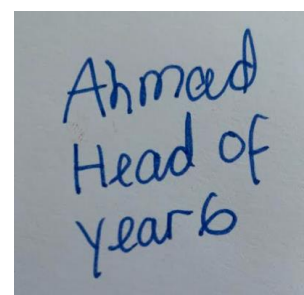 Ahmad
Head of
year 6